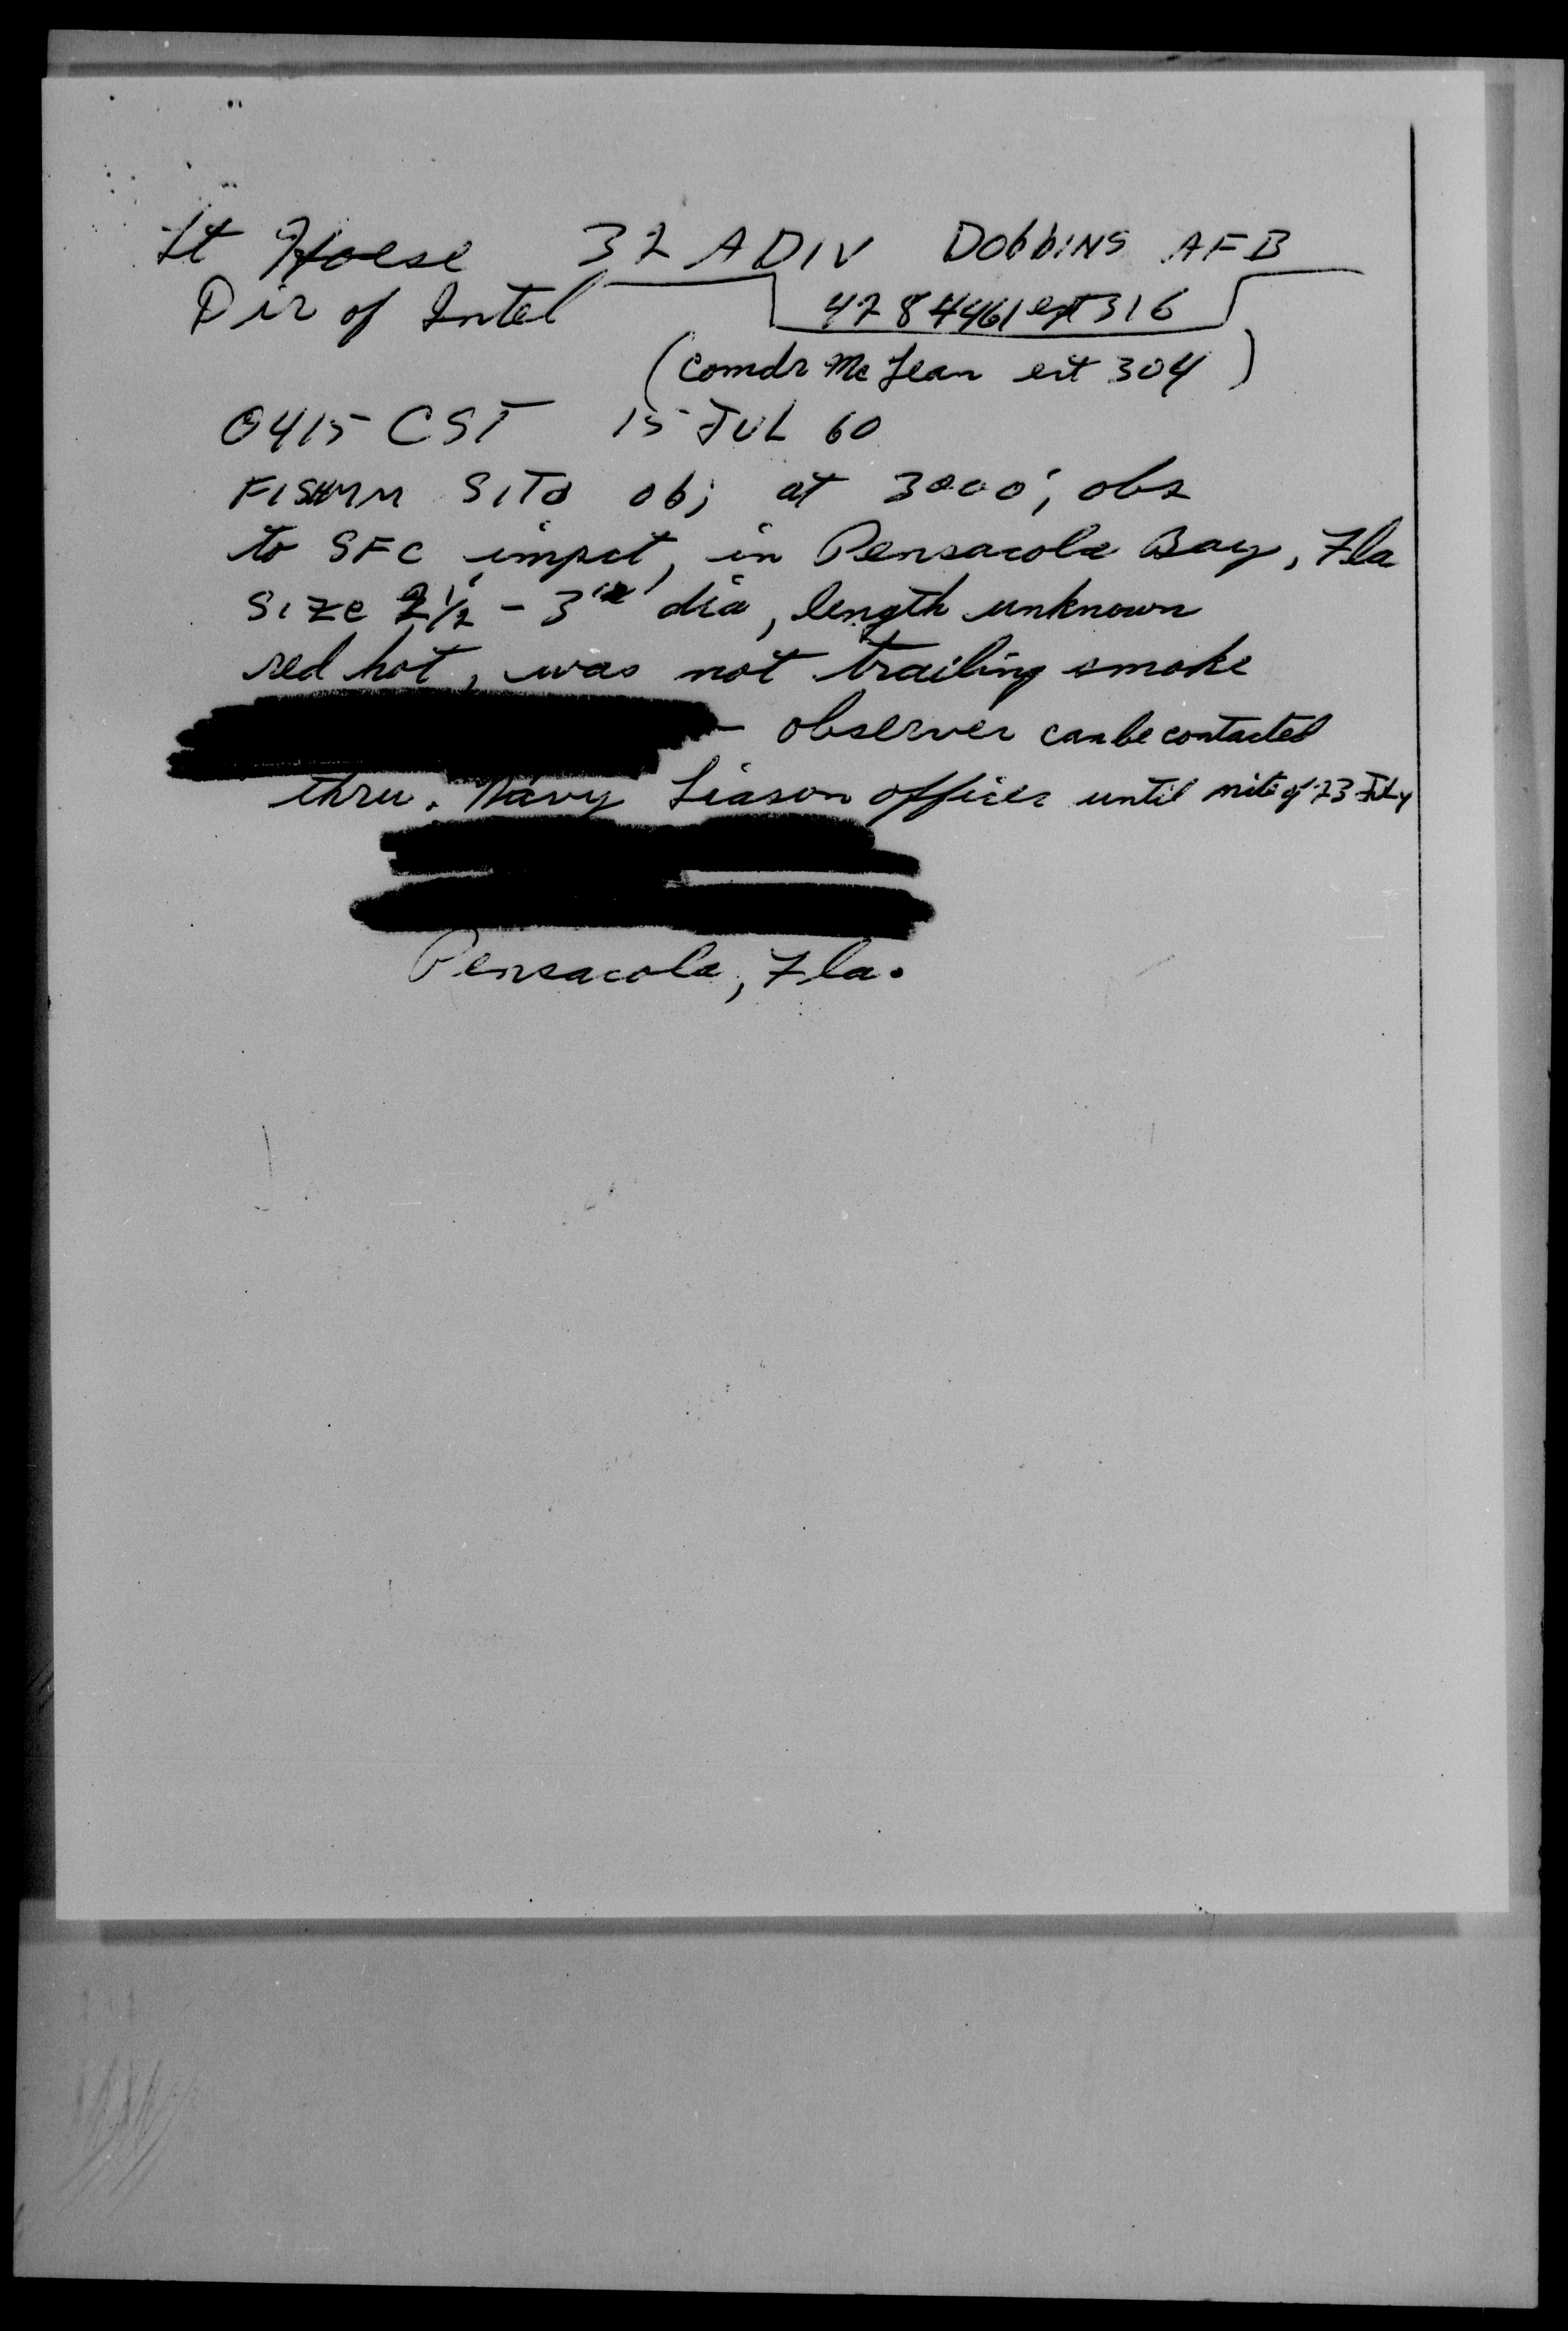 Lt Hoese 32 ADIV Dobbins AFB
Dir of Intel 4284461 ext 316
(Comdr McLean ext 304)
0415 CST 15 JUL 60
FISHMN SITD obj at 3000', obs
to SFC impct, in Pensacola Bay, Fla
Size 2½ - 3' dia, length unknown
red hot, was not trailing smoke
- observer can be contacted
thru. Navy Liason officer until nite of 23 July
Pensacola, Fla.